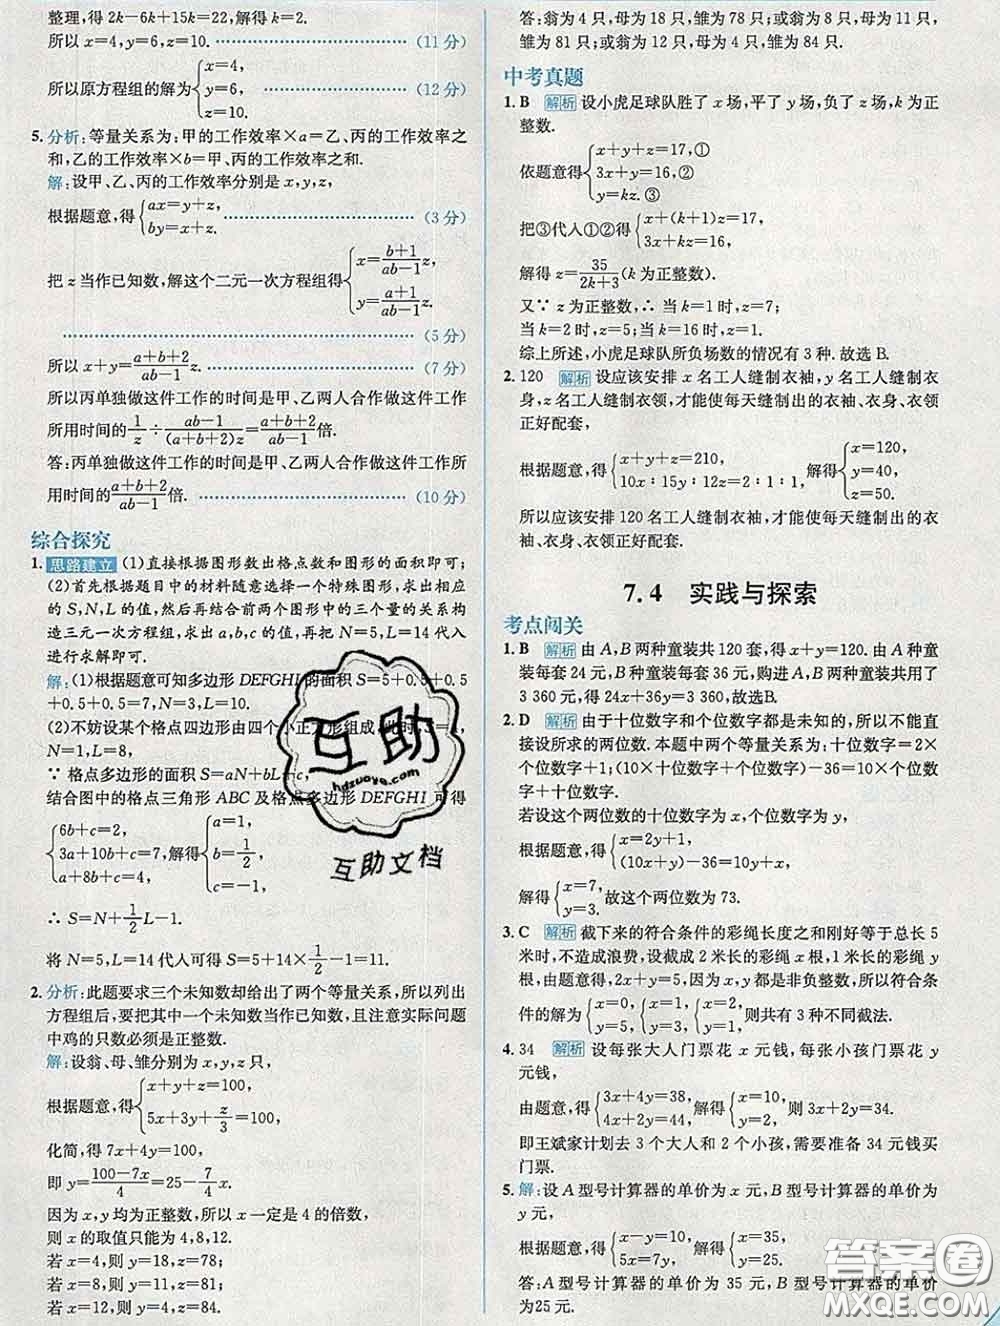 整理,得 2k-6k+15k=22,解得 k=2.
所以 x=4,y=6,z=10. (11 分)
所以原方程组的解为{x=4,
y=6,
z=10. (12 分)
5. 分析:等量关系为:甲的工作效率×a=乙、丙的工作效率之
和,乙的工作效率×b=甲、丙的工作效率之和.
解:设甲、乙、丙的工作效率分别是 x,y,z,
根据题意,得{ax=y+z,
by=x+z. (3 分)
把 z 当作已知数,解这个二元一次方程组得{x=(b+1)/(ab-1)z,
y=(a+1)/(ab-1)z.
(5 分)
所以 x+y=(a+b+2)/(ab-1)z. (7 分)
所以丙单独做这件工作的时间是甲、乙两人合作做这件工作
所用时间的1/z÷(ab-1)/((a+b+2)z)=(a+b+2)/(ab-1)倍.
答:丙单独做这件工作的时间是甲、乙两人合作做这件工作所
用时间的(a+b+2)/(ab-1)倍. (10 分)
综合探究
1. 思路建立 (1)直接根据图形数出格点数和图形的面积即可;
(2)首先根据题目中的材料随意选择一个特殊图形,求出相应
的 S,N,L 的值,然后再结合前两个图形中的三个量的关系构
造三元一次方程组,求出 a,b,c 的值,再把 N=5,L=14 代入
进行求解即可.
解:(1)根据题意可知多边形 DEFGHI 的面积 S=5+0.5+0.5
+0.5+0.5=7,N=3,L=10.
(2)不妨设某个格点四边形由四个小正方形组成,此时,S=4,
N=1,L=8,
∵ 格点多边形的面积 S=aN+bL+c,
结合图中的格点三角形 ABC 及格点多边形 DEFGHI 可得
{6b+c=2,
3a+10b+c=7,
a+8b+c=4, 解得{a=1,
b=1/2,
c=-1.
∴ S=N+1/2L-1.
将 N=5,L=14 代人可得 S=5+14×1/2-1=11.
2. 分析:此题要求三个未知数却给出了两个等量关系,所以列出
方程组后,要把其中一个未知数当作已知数,且注意实际问题
中鸡的只数必须是正整数.
解:设翁、母、雏分别为 x,y,z 只,
根据题意,得{x+y+z=100,
5x+3y+z/3=100,
化简,得 7x+4y=100,
即 y=(100-7x)/4=25-7/4x.
因为 x,y 均为正整数,所以 x 一定是 4 的倍数.
则 x 的取值只能为 4,8,12.
若 x=4,则 y=18,z=78;
若 x=8,则 y=11,z=81;
若 x=12,则 y=4,z=84.
答:翁为 4 只,母为 18 只,雏为 78 只;或翁为 8 只,母为 11 只,
雏为 81 只;或翁为 12 只,母为 4 只,雏为 84 只.
中考真题
1. B 解析 设小虎足球队胜了 x 场,平了 y 场,负了 z 场,k 为正
整数.
依题意得{x+y+z=17,①
3x+y=16,②
y=kz.③
把③代人①②得{x+(k+1)z=17,
3x+kz=16,
解得 z=35/(2k+3)(k 为正整数).
又∵ z 为正整数,∴ 当 k=1 时,z=7;
当 k=2 时,z=5;当 k=16 时,z=1.
综上所述,小虎足球队所负场数的情况有 3 种. 故选 B.
2. 120 解析 设应该安排 x 名工人缝制衣袖,y 名工人缝制衣
身,z 名工人缝制衣领,才能使每天缝制出的衣袖、衣身、衣领
正好配套,
根据题意,得{x+y+z=210,
10x∶15y∶12z=2∶1∶1, 解得{x=120,
y=40,
z=50.
所以应该安排 120 名工人缝制衣袖,才能使每天缝制出的衣
袖、衣身、衣领正好配套.
7.4 实践与探索
考点闯关
1. B 解析 由 A,B 两种童装共 120 套,得 x+y=120. 由 A 种童
装每套 24 元,B 种童装每套 36 元,购进 A,B 两种童装共用了
3 360 元,得 24x+36y=3 360,故选B.
2. D 解析 由于十位数字和个位数字都是未知的,所以不能直
接设所求的两位数. 本题中两个等量关系为:十位数字=2×
个位数字+1;(10×十位数字+个位数字)-36=10×个位数
字+十位数字.
若设这个两位数的十位数字为 x,个位数字为 y,
根据题意,得{x=2y+1,
(10x+y)-36=10y+x.
解得{x=7,
y=3. 故这个两位数为 73.
3. C 解析 截下来的符合条件的彩绳长度之和刚好等于总长 5
米时,不造成浪费,设截成 2 米长的彩绳 x 根,1 米长的彩绳 y
根,由题意得,2x+y=5,因为 x,y 都是非负整数,所以符合条
件的解为{x=0,
y=5, {x=1,
y=3, {x=2,
y=1, 则共有 3 种不同截法.
4. 34 解析 设每张大人门票花 x 元钱,每张小孩门票花 y
元钱,
由题意,得{3x+4y=38,
4x+2y=44, 解得{x=10,
y=2, 则 3x+2y=34.
即王斌家计划去 3 个大人和 2 个小孩,需要准备 34 元钱买
门票.
5. 解:设 A 型号计算器的单价为 x 元,B 型号计算器的单价为
y 元,
根据题意,得{x-y=10,
5x=7y, 解得{x=35,
y=25.
答:A 型号计算器的单价为 35 元,B 型号计算器的单价
为25 元.
互助
hdzuoye.com
互助文档
答案圈
MXQE.COM